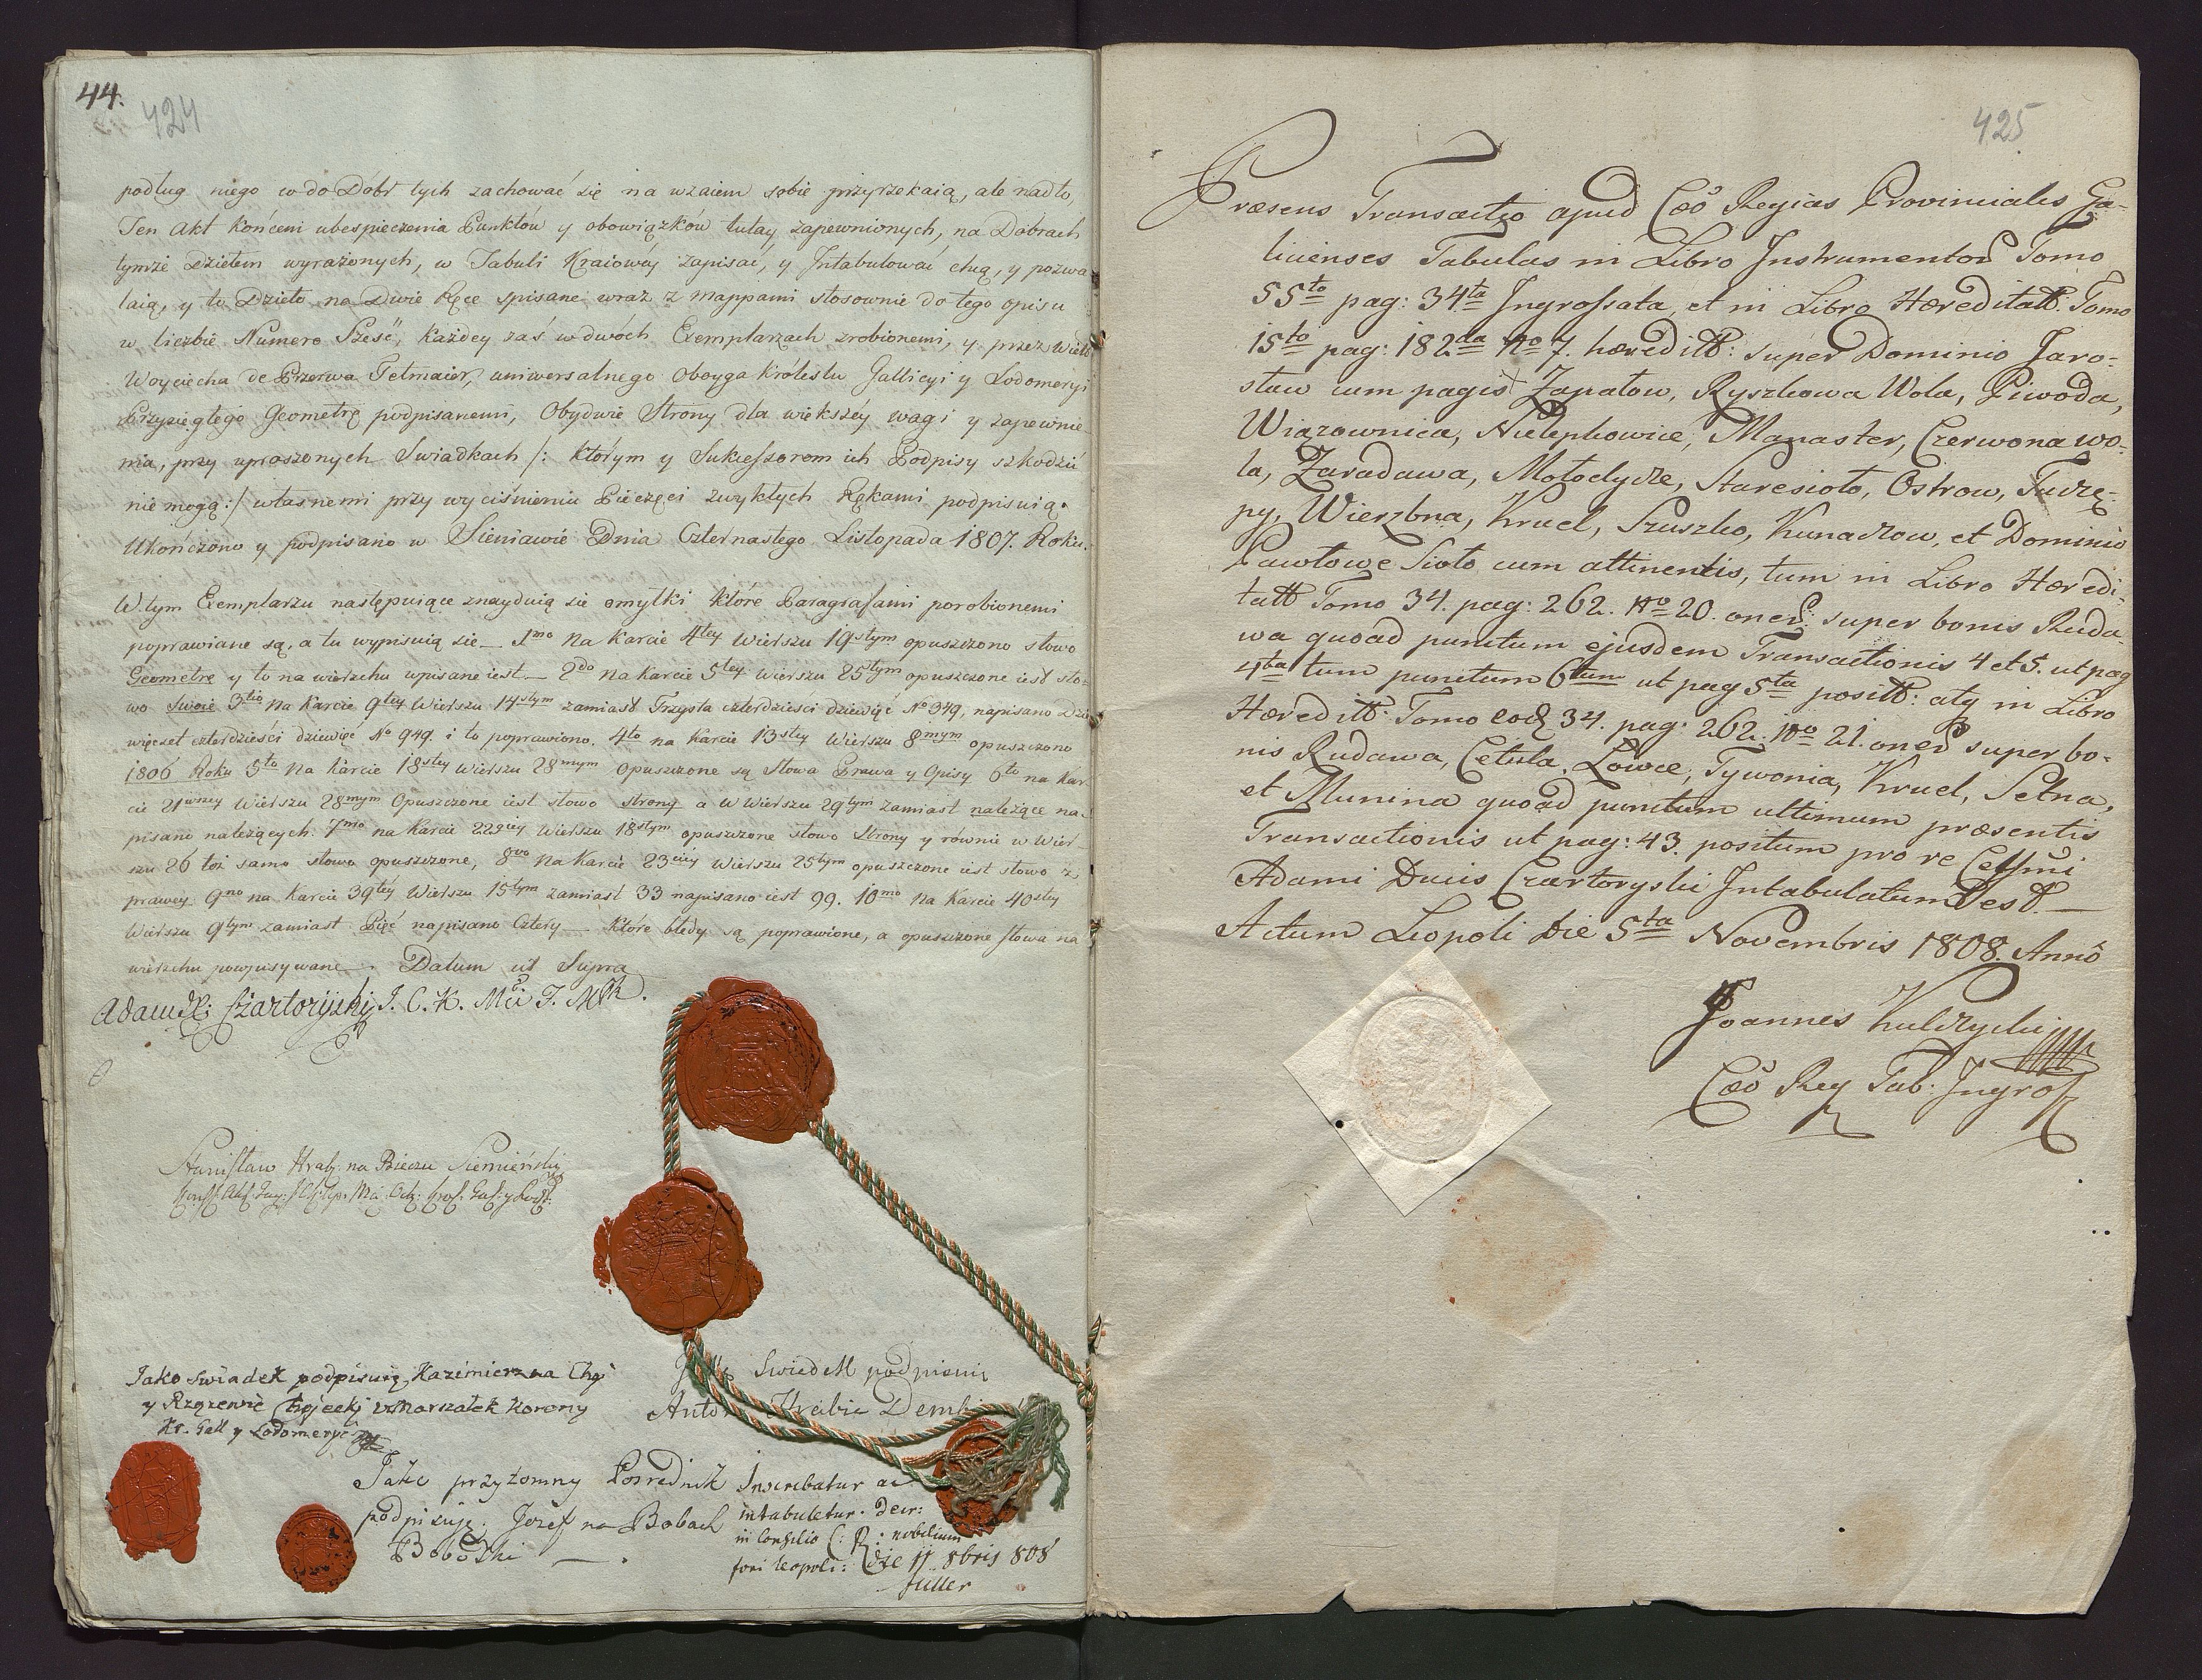 44.
424
podług niego co do Dóbr tych zachować się na wzaiem sobie przyrzekaią, ale nadto,
Ten Akt końcem ubespieczenia Punktów y obowiązków tutay zapewnionych, na Dobrach
tymże Dziełem wyrażonych, w Tabuli Kraiowéy zapisać, y Intabulować chcą, y pozwa
laią, y to Dzieło na Dwie Ręce spisane wraz z mappami stosownie do tego opisu
w liczbie Numero Sześć, każdey zaś w dwóch Exemplarzach zrobionemi, y przez Wielo
Woyciecha de Przerwa Tetmaier, uniwersalnego oboyga Królestw Gallicyi y Lodomeryi
Przysięgłego Geometrę podpisanemi, Obydwie Strony dla większéy wagi y zapewnie-
nia, przy uproszonych Swiadkach /: którym y Sukcessorom ich Podpisy szkodzić
nie mogą :/ własnemi przy wyciśnieniu Pieczęci zwykłych Rękami podpisuią.
Ukończono y podpisano w Sieniawie Dnia Czternastego Listopada 1807. Roku.
W tym Exemplarzu następuiące znayduią się omyłki które Paragrafami porobionemi
poprawiane są, a tu wypisuią się — 1mo Na Karcie 4tey Wierszu 19stym opuszczono słowo
Geometrę y to na wierzchu wpisane iest — 2do Na Karcie 5tey wierszu 25tym opuszczone iest sło-
wo Swoie 3tio Na Karcie 9tey Wierszu 14stym zamiast Trzysta czterdzieści dziewięć No 349, napisano Dzie
więćset czterdzieści dziewięć No 949. i to poprawiono. 4to na Karcie 13stey Wierszu 8mym opuszczono
1806 Roku 5to Na Karcie 18stey Wierszu 28mym opuszczone są słowa Prawa y Opisy 6to na Kar
cie 21wszey Wierszu 28mym Opuszczone iest słowo strony a w Wierszu 29tym zamiast należące na-
pisano należących. 7mo na Karcie 22giey Wierszu 18stym opuszczone słowo Strony y równie w Wier-
szu 26 toż samo słowo opuszczone, 8vo Na Karcie 23ciey Wierszu 25tym opuszczone iest słowo z
prawey 9no na Karcie 39tey Wierszu 15tym zamiast 33 napisano iest 99. 10mo Na Karcie 40stey
Wierszu 9tym zamiast Pięć napisano Cztery — które błędy są poprawione, a opuszczone słowa na
wierzchu powpisywane — Datum ut Supra
Adam Xże Czartoryski J. C. K. Mci
Stanisław Hrab. na Bieczu Siemieński
Jako swiadek podpisuię Kazimierz na
y Rzązewie Marszałek Korony
Kr. Gall y Lodomeryi
Swiadek podpisuię
Hrabia
Jako przytomny Posrednik
podpisuję. Jozef na Bobach
Bobozki — .
Inscribatur ac
intabuletur. decr:
in Consilio C: R: nobilium
fori Leopoli: die 11 8bris 808
Füller
425
Præsens Transactio apud Cæo Regias Provinciales Ga-
licienses Tabulas in Libro Instrumentor Tomo
55to pag: 34ta Ingrossata, et in Libro Hæreditatt: Tomo
15to pag: 182da No 7. hæreditt: super Dominio Jaro-
slaw cum pagis Zapatow, Ryszkowa Wola, Piwoda,
Wiązownica, Nielepkowice, Manaster, Czerwona wo-
la, Zaradawa, Mołodycze, Staresioło, Ostrow, Tuczę-
py, Wierzbna, Kruel, Szuszko, Kunaczow, et Dominio
Pawłowe Sioło cum attinentis, tum in Libro Hæredi-
tatt Tomo 34. pag: 262. No 20. oner: super bonis Ruda-
wa quoad punctum ejusdem Transactionis 4 et 5. ut pag
4ta tum punctum 6tum ut pag 5ta positt: atq in Libro
Hæreditt: Tomo eod 34. pag: 262. No 21. oner super bo-
nis Rudawa, Cetula, Łowce, Tywonia, Kruel, Setna,
et Munina quoad punctum ultimum præsentis
Transactionis ut pag: 43. positum pro re Celsmi
Adami Ducis Czartoryski Intabulatum est. —
Actum Leopoli die 5ta Novembris 1808. Anno
Joannes Kulczycki
Cæo Reg Tab: Ingross